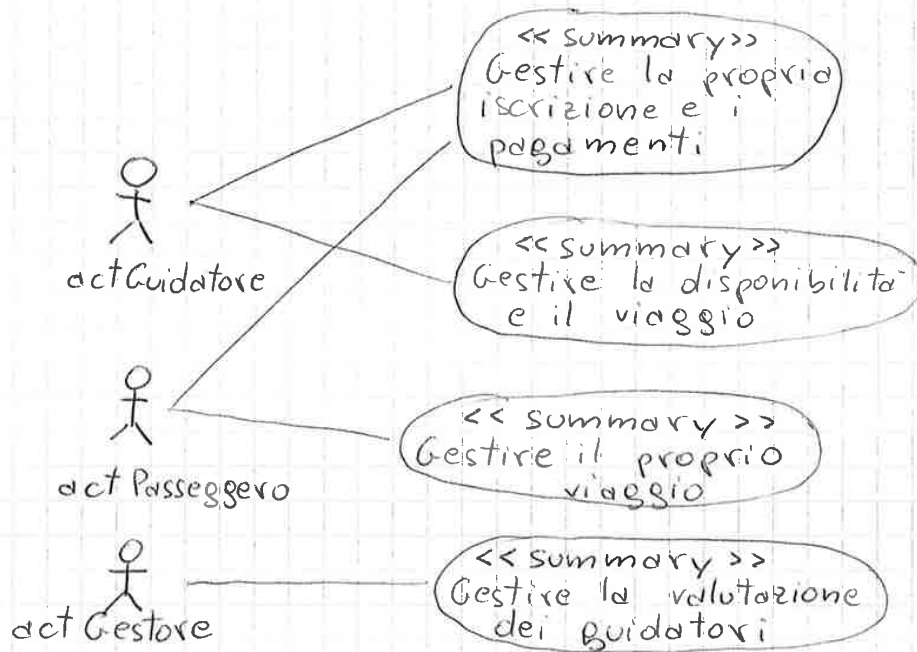 << summary >>
Gestire la propria
iscrizione e i
pagamenti
actGuidatore
<< summary >>
Gestire la disponibilità
e il viaggio
<< summary >>
Gestire il proprio
viaggio
act Passeggero
<< summary >>
Gestire la valutazione
dei guidatori
act Gestore